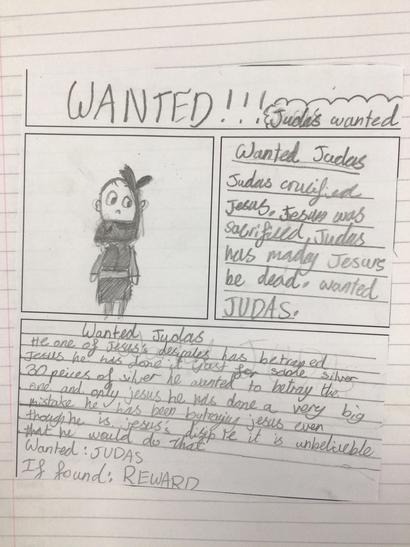 WANTED!!!
Judas wanted
Wanted Judas
Judas crucified
Jesus. Jesus was
sacrificed, Judas
has made Jesus
be dead. wanted
JUDAS.
Wanted Judas
He one of Jesus's has betrayed
Jesus he has done it just for some silver
30 peices of silver he wanted to betray the
one and only jesus he has done a very big
mistake he has been betraying jesus even
though he is jesus's it is
that he would do that
Wanted: JUDAS
If found: REWARD